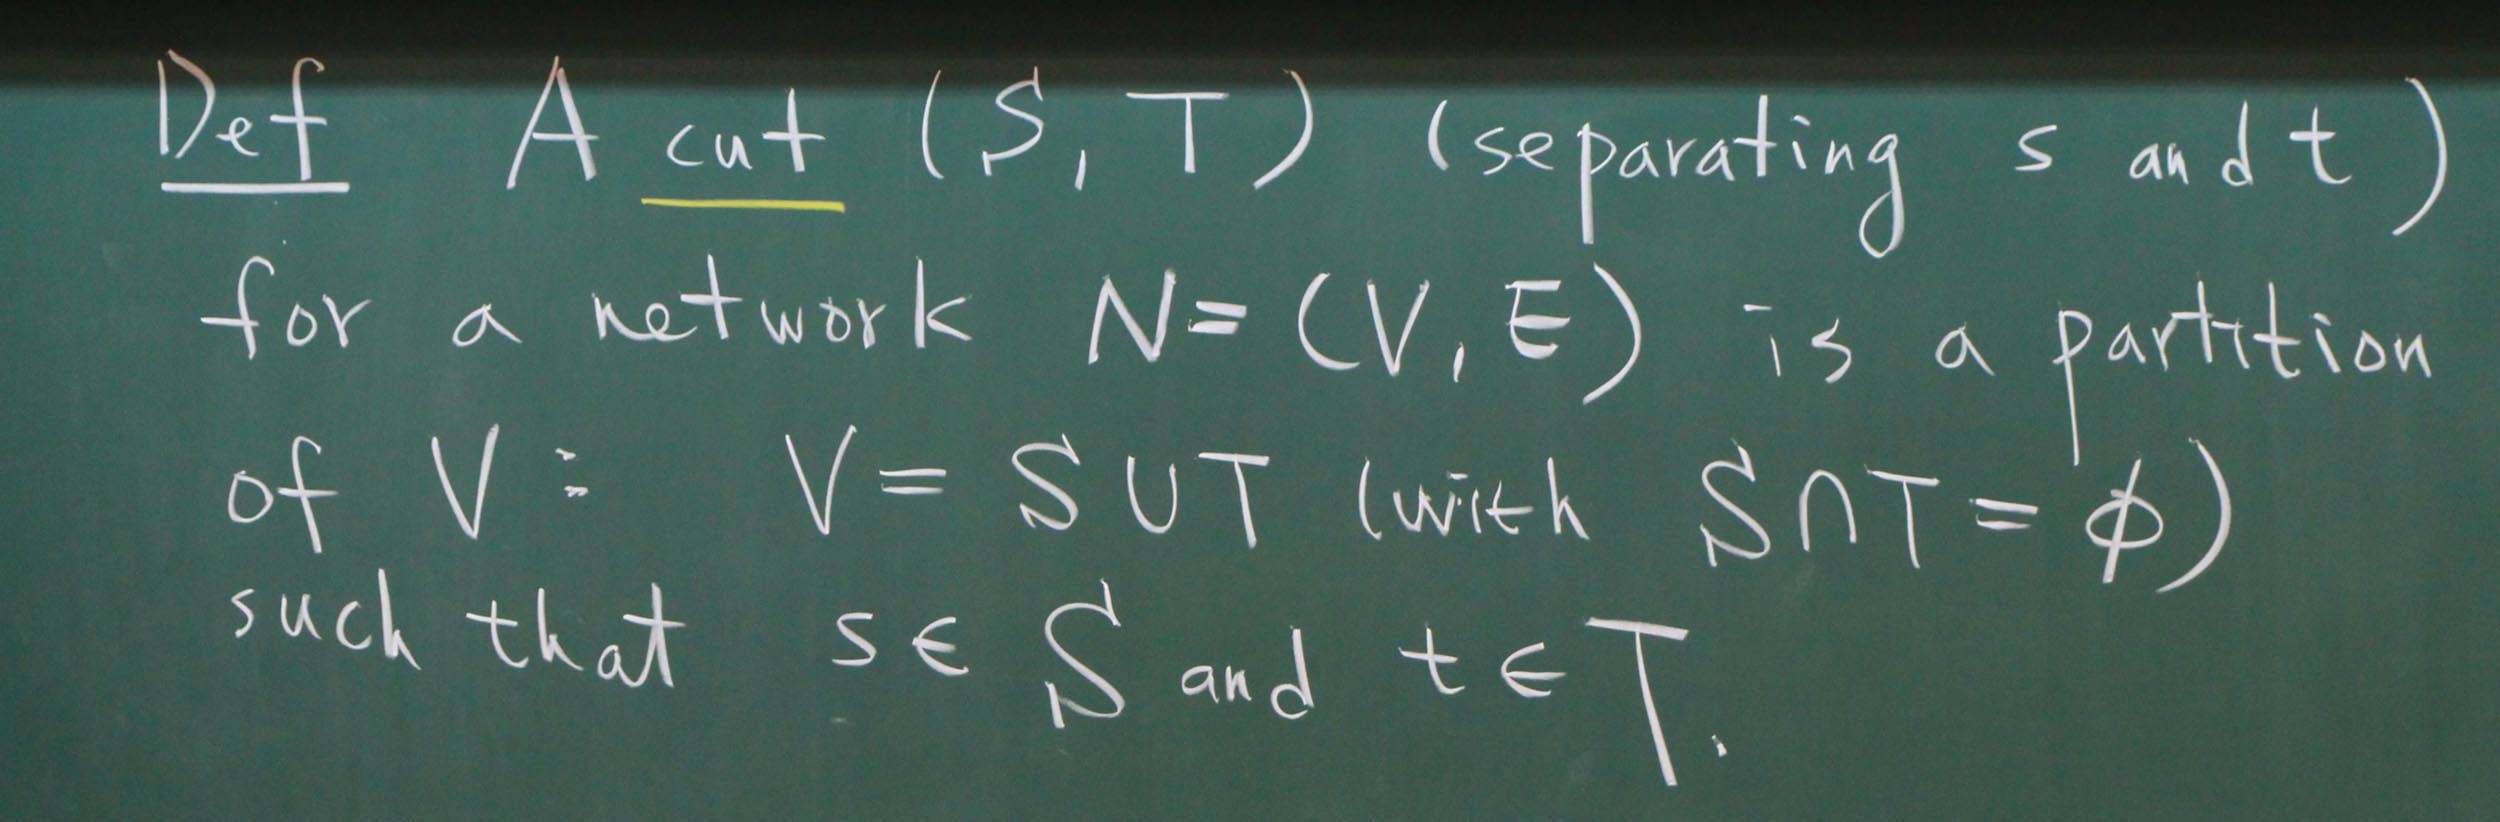 Def A cut (S, T) (separating s and t)
for a network N = (V, E) is a partition
of V : V = S ∪ T (with S ∩ T = ϕ)
such that s ∈ S and t ∈ T.